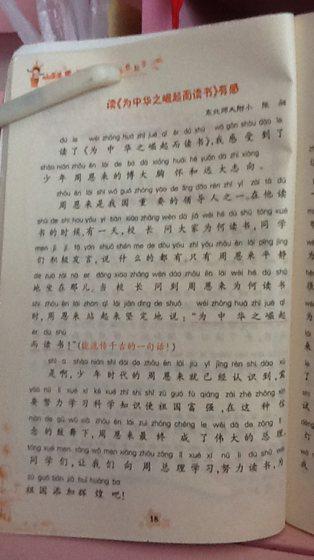 读《为中华之崛起而读书》有感
东北师大附小 陈
dú le wéi zhōng huá zhī jué qǐ ér dú shū wǒ gǎn shòu dào le
读了《为中华之崛起而读书》,我感受到了
shào nián zhōu ēn lái de bó dà xiōng huái hé yuǎn dà zhì xiàng
少年周恩来的博大胸怀和远大志向。
zhōu ēn lái shì wǒ guó zhòng yào de lǐng dǎo rén zhī yī zài tā dú
周恩来是我国重要的领导人之一。在他读
shū de shí hou yǒu yì tiān xiào zhǎng wèn dà jiā wèi hé dú shū tóng xué
书的时候,有一天,校长问大家为何读书,同学
men jī jí fā yán shuō shén me de dōu yǒu zhǐ yǒu zhōu ēn lái píng jìng
们积极发言,说什么的都有,只有周恩来平静
de zuò zài nà er dāng xiào zhǎng wèn dào zhōu ēn lái wèi hé dú shū
地坐在那儿。当校长问到周恩来为何读书
shí zhōu ēn lái zhàn qǐ lái jiān dìng de shuō wèi zhōng huá zhī jué qǐ
时,周恩来站起来坚定地说:“为中华之崛起
ér dú shū
而读书!”(能流传千古的一句话!)
shì a shào nián shí dài de zhōu ēn lái jiù yǐ jīng rèn shi dào
是啊,少年时代的周恩来就已经认识到,
yào nǔ lì xué xí kē xué zhī shi shǐ zǔ guó fù qiáng zài zhè zhǒng xìn
要努力学习科学知识使祖国富强,在这种信
niàn de gǔ wǔ xià zhōu ēn lái zuì zhōng chéng le wěi dà de zǒng lǐ
念的鼓舞下,周恩来最终成了伟大的总理。
tóng xué men ràng wǒ men xiàng zhōu zǒng lǐ xué xí nǔ lì dú shū wèi
同学们,让我们向周总理学习,努力读书,为
zǔ guó tiān jiā huī huáng ba
祖国添加辉煌吧!
18